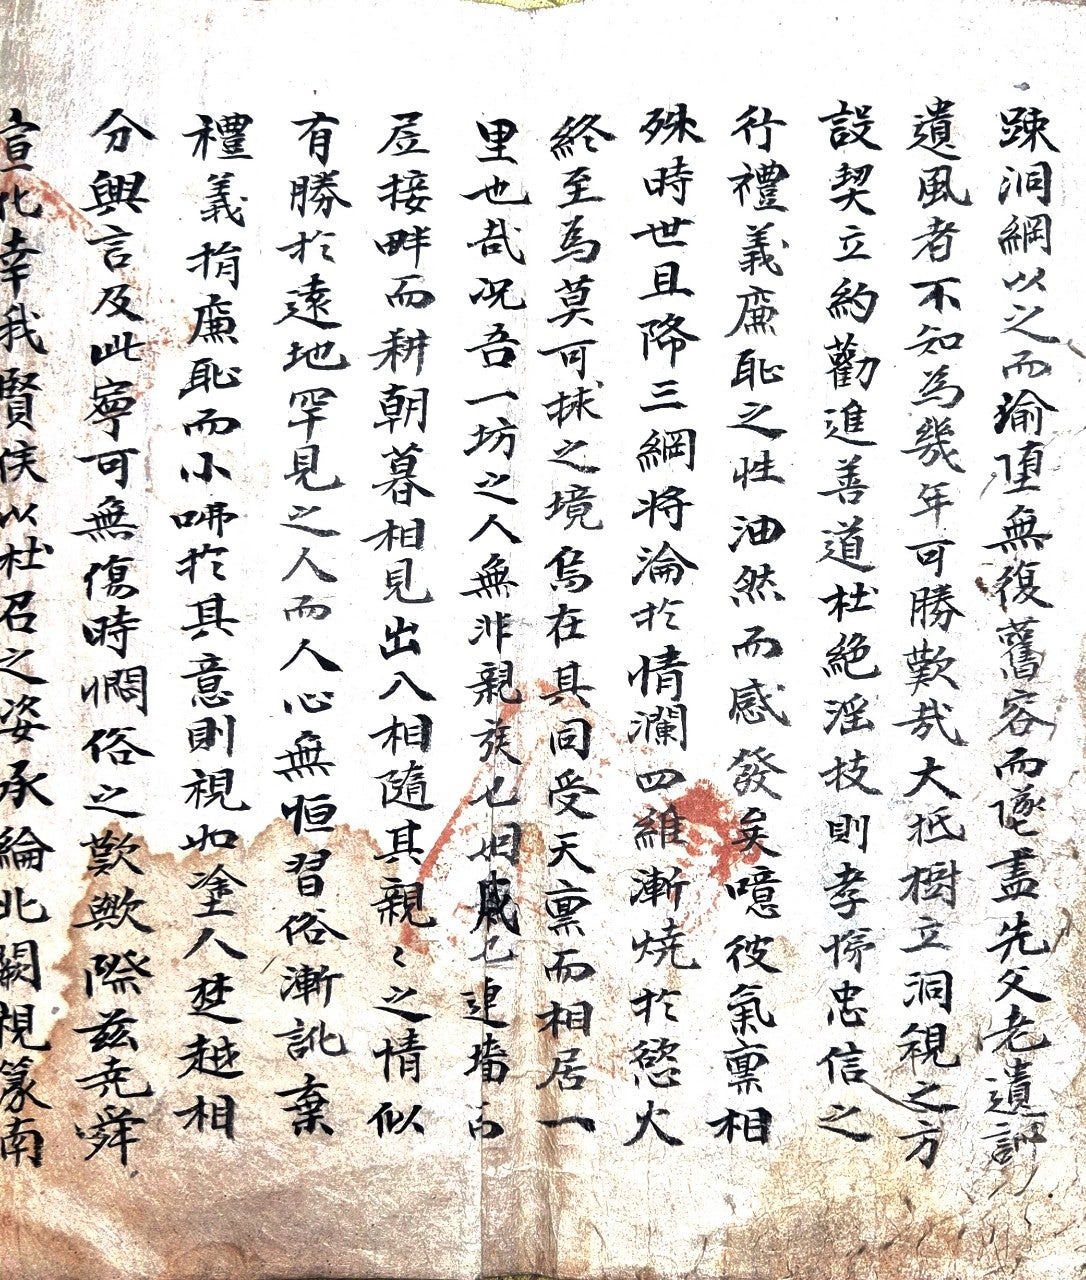 踈洞綱以之而瑜堕無復舊容而墜盡先父老遺訓
遺風者不知為幾年可勝歎哉大抵樹立洞規之方
設契立約勸進善道杜絶淫技則孝悌忠信之
行禮義廉恥之性油然而感發矣噫彼氣禀相
殊時世且降三綱將淪於情瀾四維漸燒於慾火
終至為莫可捄之境烏在其同受天禀而相居一
里也哉况吾一坊之人無非親族也姻戚也連墻
居接畔而耕朝暮相見出入相隨其親〻之情似
有勝於遠地罕見之人而人心無恒習俗漸訛棄
禮義捐廉恥而小咈於其意則視如塗人楚越相
分興言及此寧可無傷時憫俗之歎歟際兹堯舜
宣化幸我賢侯以杜召之姿承綸北闕視篆南